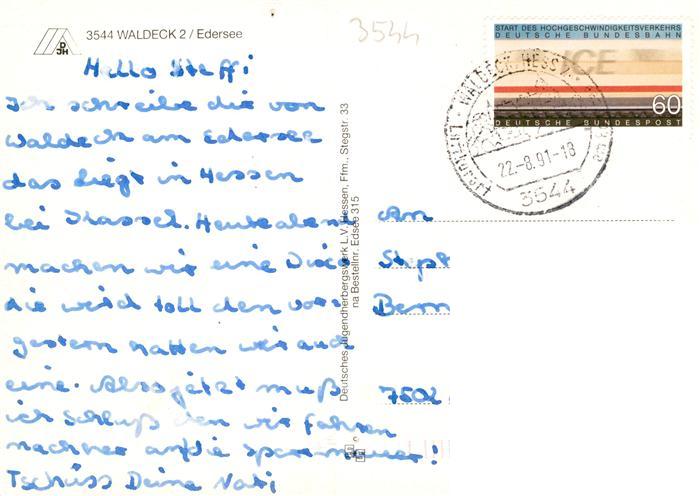 3544 WALDECK 2 / Edersee
DJH
3544
START DES HOCHGESCHWINDIGKEITSVERKEHRS
DEUTSCHE BUNDESBAHN
ICE
60
DEUTSCHE BUNDESPOST
WALDECK, HESS
22.-8.91-18
3544
Hello Steffi
Ich schreibe die von
Waldeck am Edersee
das liegt in Hessen
bei Kassel. Heute abend
machen wir eine Disco
die wird toll den vor
gestern hatten wir auch
eine. Also jetzt muß
ich schluß den wir fahren
nachher an die sperrmauer!
Tschüss Deine Nati
Deutsches Jugendherbergswerk L.V. Hessen, Ffm., Stegstr. 33
na Bestellnr. Edsee 315
An
Steph
Bern
7502